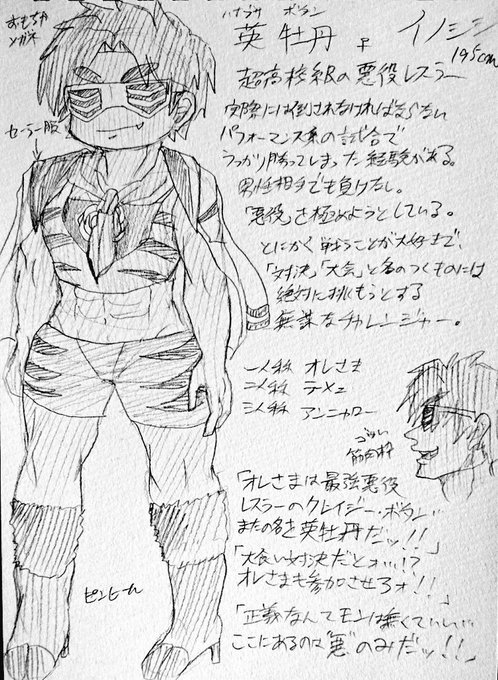 おもちゃ
メガネ
ハナブサ ボタン
英 牡丹 ♀ イノシシ
195cm
超高校級の悪役レスラー
セーラー服
実際には倒されなければならない
パフォーマンス系の試合で
うっかり勝ってしまった経験がある。
男性相手でも負けなし。
「悪役」を極めようとしている。
とにかく戦うことが大好きで、
「対決」「大会」と名のつくものには
絶対に挑もうとする
無謀なチャレンジャー。
一人称 オレさま
二人称 テメェ
三人称 アンニャロー
ゴツい
筋肉枠
ピンヒール
「オレさまは最強悪役
レスラーのクレイジー・ボタン…
またの名を英牡丹だッ!!」
「大食い対決だとォ…!?
オレさまも参加させろォ!!」
「正義なんてモンは無くていい…
ここにあるのは"悪"のみだッ!!」